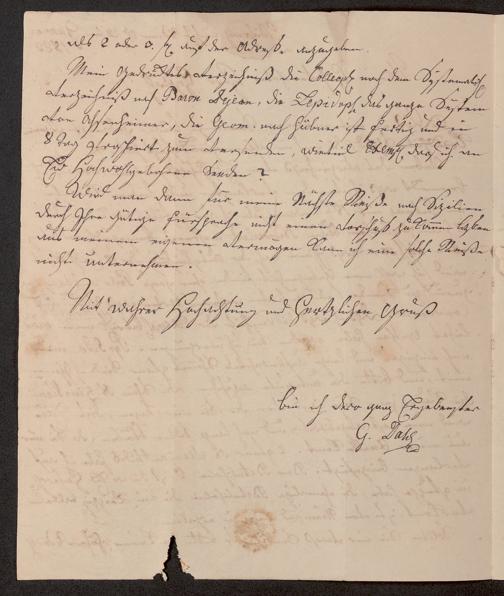 als 2 oder 3. fl auf der Adresse anzugeben.
Mein gedrucktes Verzeichniß die Colleopt nach dem Systematisch
Verzeichniß nach Baron Dejean, die Lepidopt, das ganze System
von Ochsenheimer, die Geom. nach Hübner ist fertig und in
8 Tag zum versenden, wieviel Exempl. darf ich an
Eu Hochwohlgebohren senden?
Wird man dann für meine Nächste Reise nach Sizilien
durch Ihre gütige Fürsprache nicht einen Vorschuß zu kommen laßen
aus meinem eigenen Vermögen kann ich eine solche Reise
nicht unternehmen.
Mit wahrer Hochachtung und Hertzlichen Gruß
bin ich dero ganz Ergebenster
G. Dahl